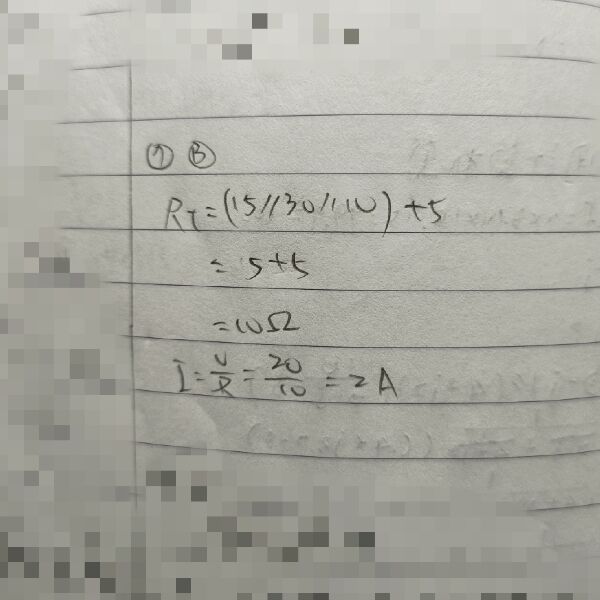 ⑦ Ⓑ
R_T = (15//30//10) + 5
= 5 + 5
= 10 Ω
I = V/R = 20/10 = 2 A